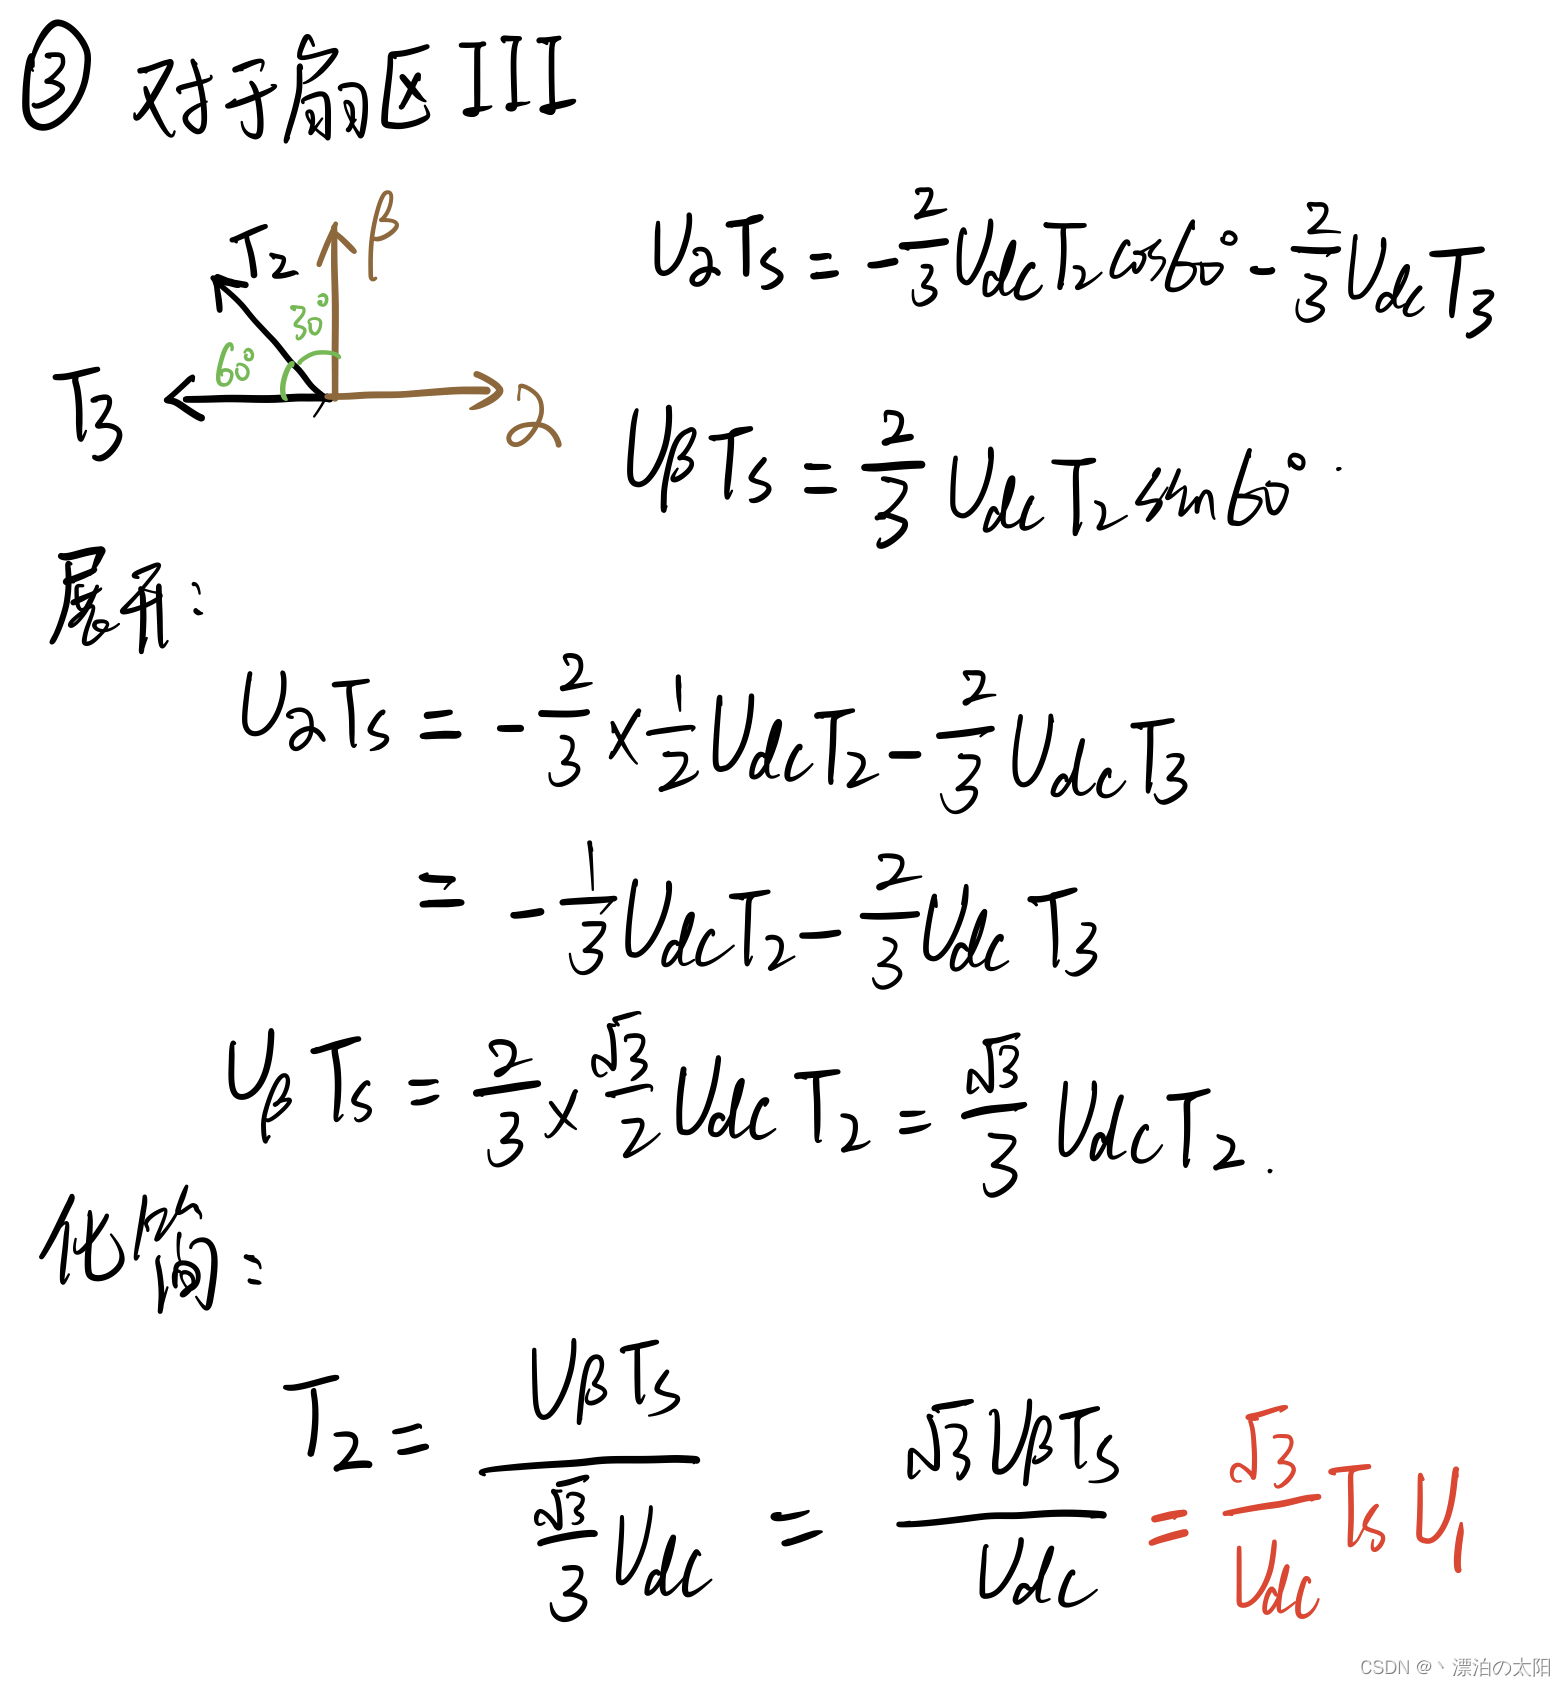 ③ 对于扇区 III
β
T₂
30°
60°
T₃
α
UαTs = -2/3 Udc T₂ cos60° - 2/3 Udc T₃
Uβ Ts = 2/3 Udc T₂ sin60°
展开:
UαTs = -2/3 × 1/2 Udc T₂ - 2/3 Udc T₃
= -1/3 Udc T₂ - 2/3 Udc T₃
Uβ Ts = 2/3 × √3/2 Udc T₂ = √3/3 Udc T₂.
化简:
T₂ = UβTs / (√3/3 Udc) = √3 UβTs / Udc = √3/Udc Ts U₁
CSDN @丶漂泊の太阳